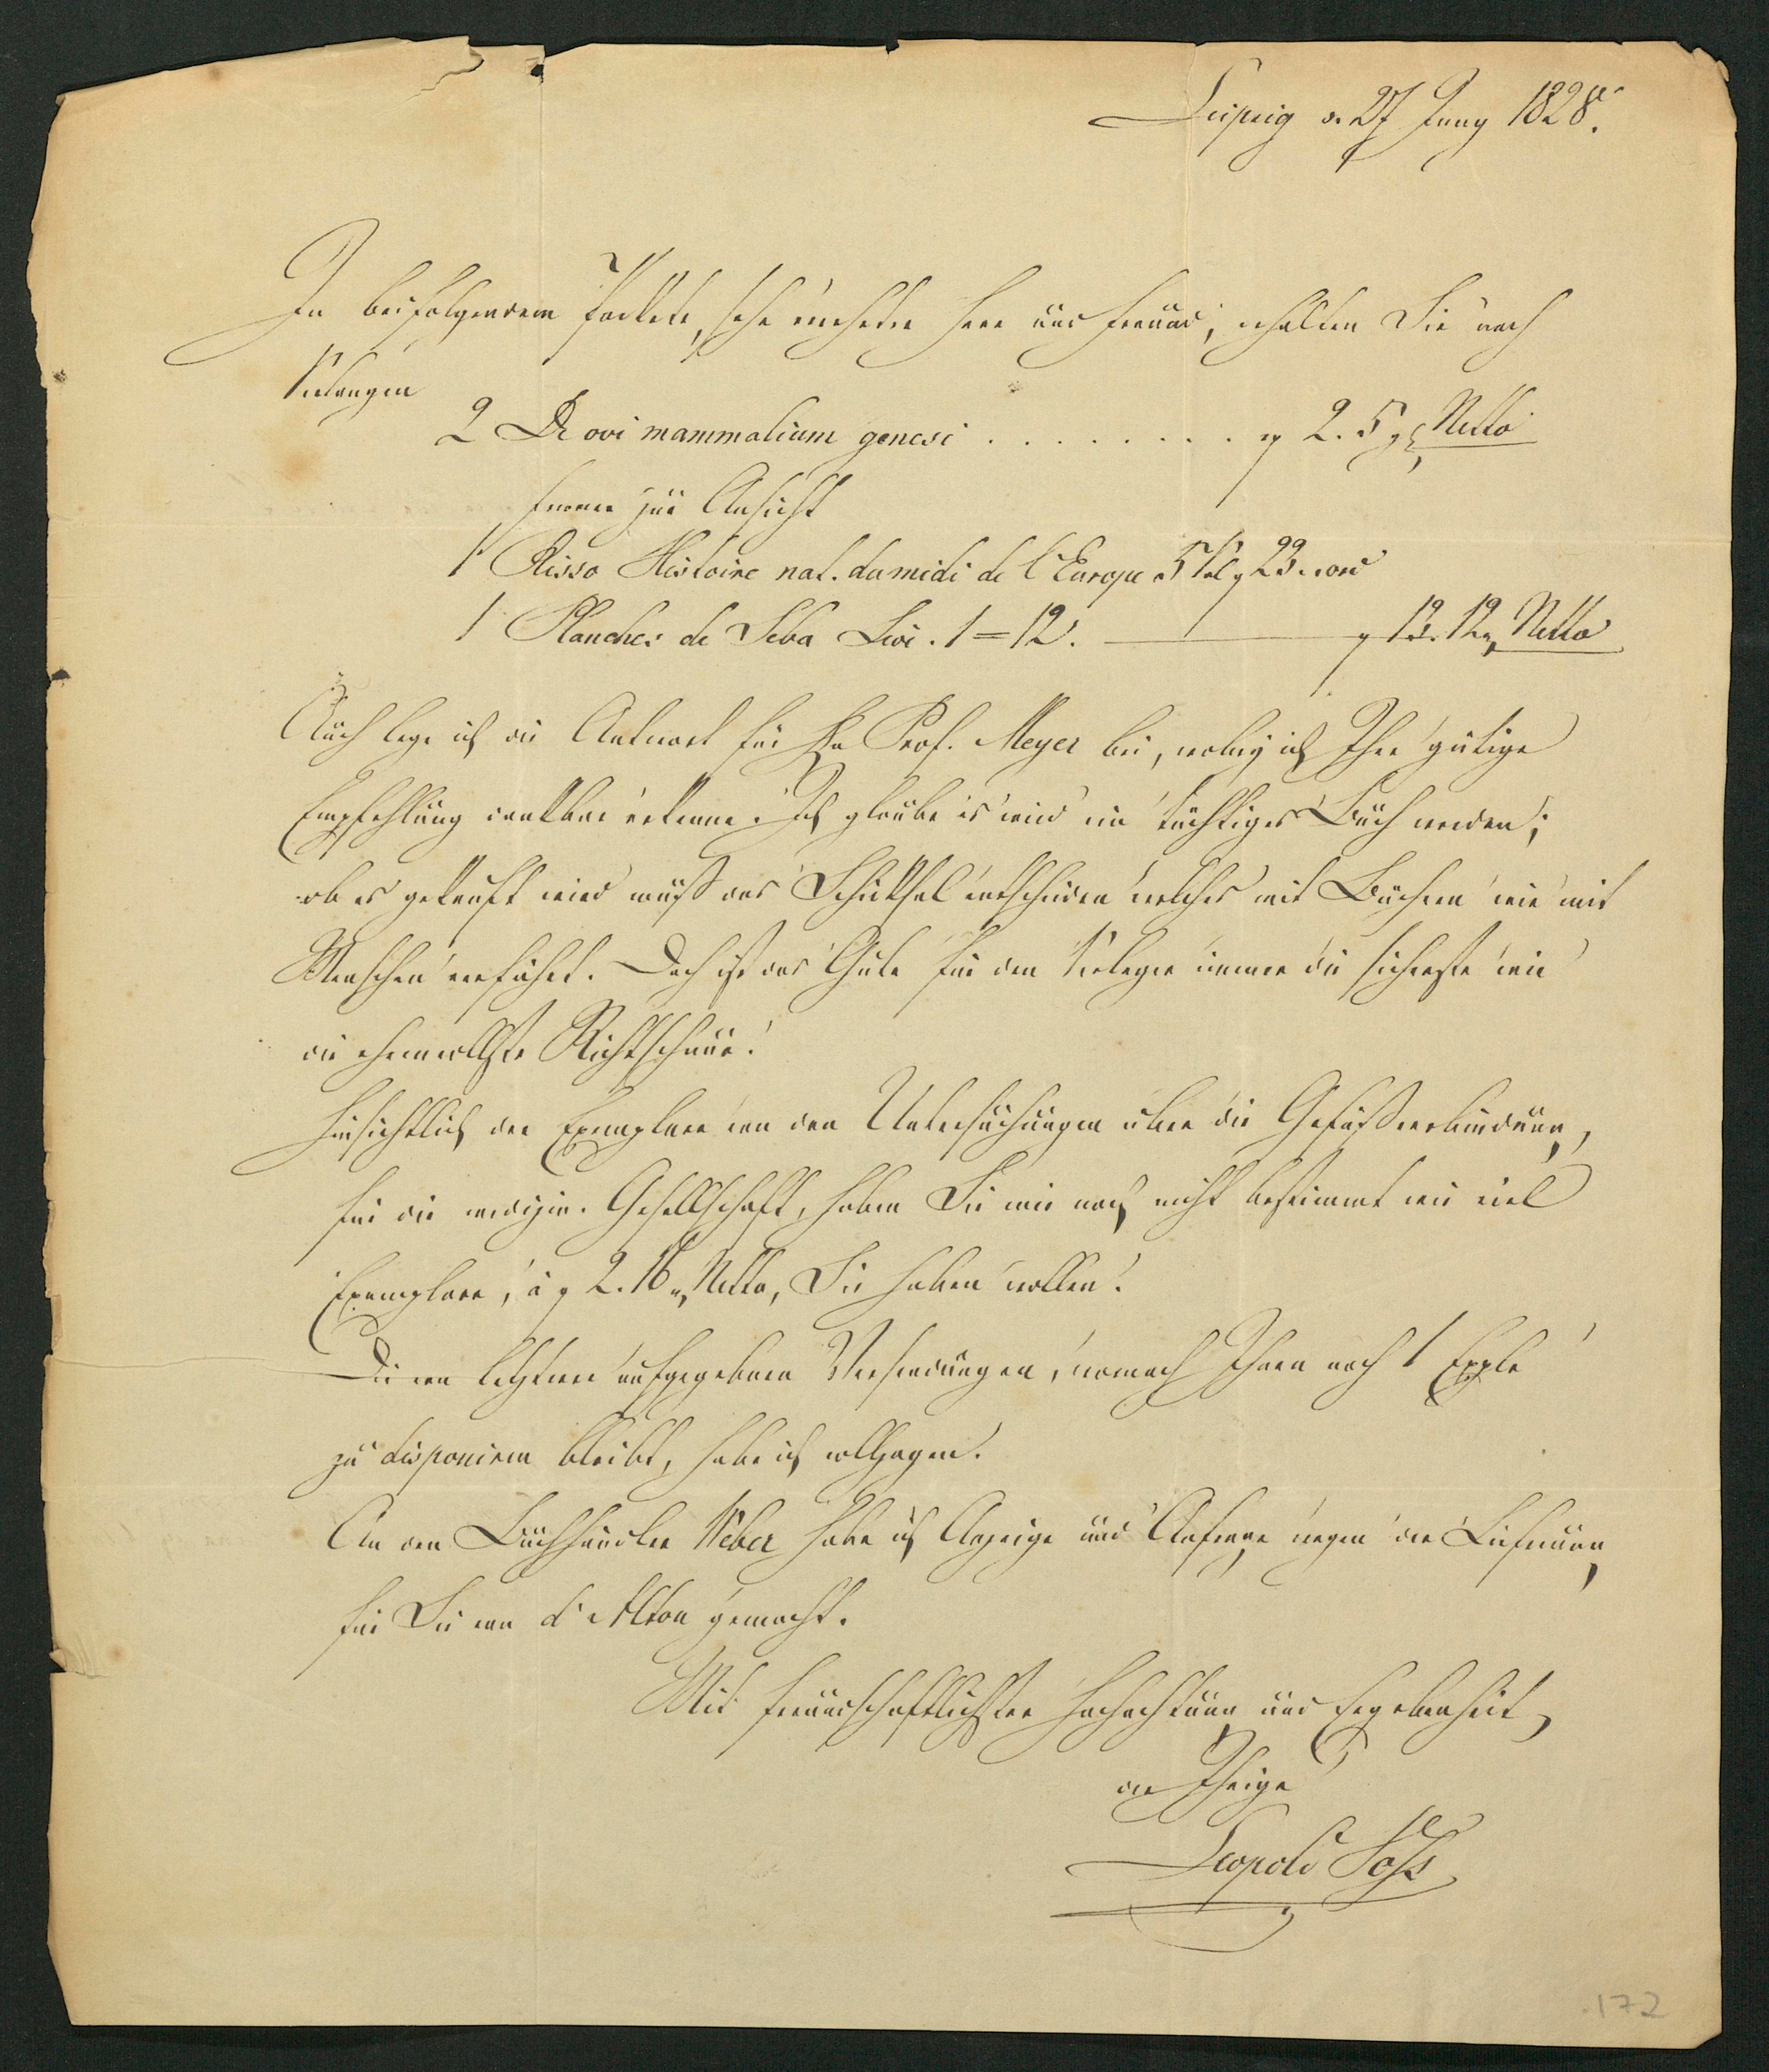 Leipzig d. 27 Juny 1828.
In beifolgendem Packete, sehr verehrter Herr und Freund, erhalten Sie nach
Verlangen
2 De ovi mammalium genesi . . . . . . . . . 2. 5 Netto
ferner zur Ansicht
1 Risso Histoire nat. du midi de l'Europe 5 Vol 23 ord
1 Planches de Seba Livr. 1=12. 12. 12 Netto
Auch lege ich die Antwort für Hn Prof. Meyer bei, wobey ich Ihre gütige
Empfehlung dankbar erkenne. Ich glaube es wird ein tüchtiges Buch werden;
ob es gekauft wird muß das Schicksal entscheiden welches mit Büchern wie mit
Menschen verfährt. Doch ist das Gute für den Verleger immer die sicherste wie
die ehrenvollste Richtschnur!
Hinsichtlich der Exemplare von den Untersuchungen über die Gefäßverbindung,
für die medizin. Gesellschaft, haben Sie mir noch nicht bestimmt wie viel
Exemplare, à 2. 16 Netto, Sie haben wollen!
Die von letztern aufgegebenen Versendungen, wonach Ihnen noch 1 Exple
zu disponiren bleibt, habe ich vollzogen.
An den Buchhändler Weber habe ich Anzeige und Anfrage wegen der Lieferung
für Sie von d'Alton gemacht.
Mit freundschaftlichster Hochachtung und Ergebenheit,
der Ihrige
Leopold Voß
172